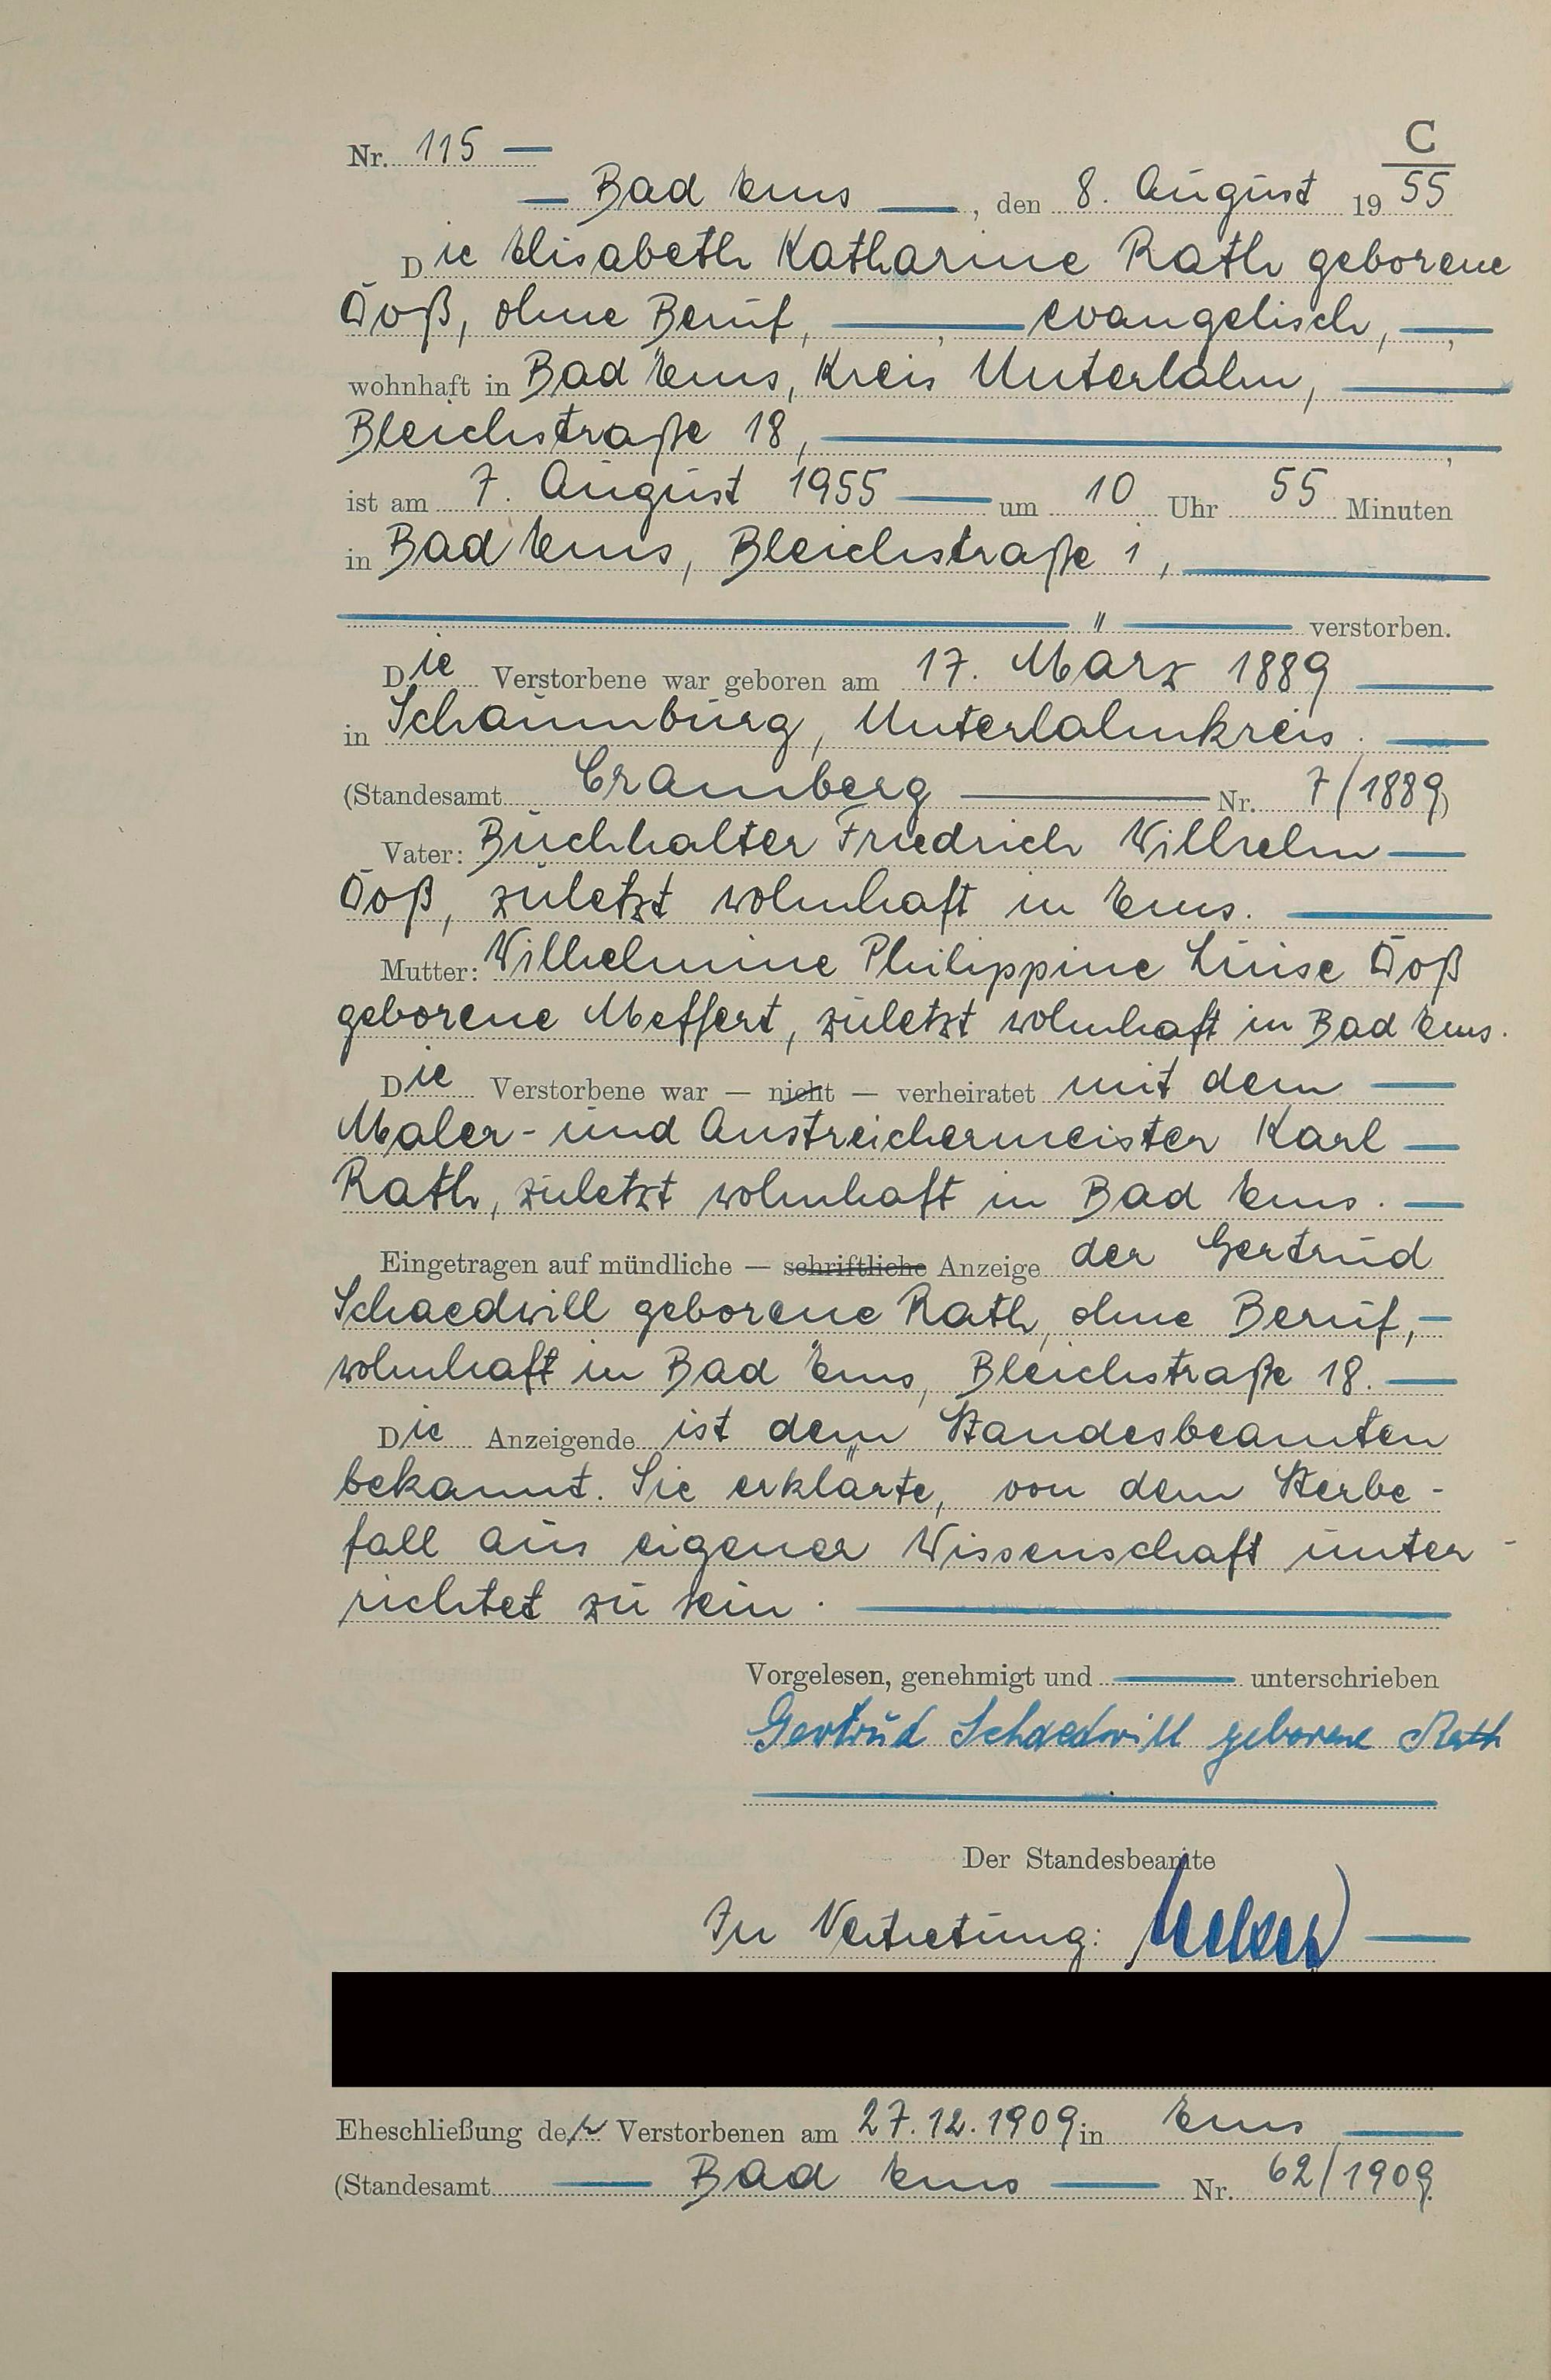 C
Nr. 115 —
— Bad Ems —, den 8. August 19 55
Die Elisabeth Katharine Rath geborene
Doß, ohne Beruf, — , — evangelisch, —,
wohnhaft in Bad Ems, Kreis Unterlahn, —
Bleichstraße 18, — ,
ist am 7. August 1955 — um 10 Uhr 55 Minuten
in Bad Ems, Bleichstraße 1, —
— " — verstorben.
Die Verstorbene war geboren am 17. März 1889 —
in Schaumburg, Unterlahnkreis. —
(Standesamt Cramberg — Nr. 7/1889)
Vater: Buchhalter Friedrich Wilhelm —
Doß, zuletzt wohnhaft in Ems. —
Mutter: Wilhelmine Philippine Luise Doß
geborene Meffert, zuletzt wohnhaft in Bad Ems.
Die Verstorbene war — nicht — verheiratet mit dem —
Maler- und Anstreichermeister Karl —
Rath, zuletzt wohnhaft in Bad Ems. —
Eingetragen auf mündliche — schriftliche Anzeige der Gertrud
Schaedwill geborene Rath, ohne Beruf, —
wohnhaft in Bad Ems, Bleichstraße 18. —
Die Anzeigende ist dem Standesbeamten
bekannt. Sie erklärte, von dem Sterbe-
fall aus eigener Wissenschaft unter-
richtet zu sein. —
Vorgelesen, genehmigt und — unterschrieben
Gertrud Schaedwill geborene Rath
Der Standesbeamte
In Vertretung: —
Eheschließung der Verstorbenen am 27.12.1909 in Ems —
(Standesamt — Bad Ems — Nr. 62/1909